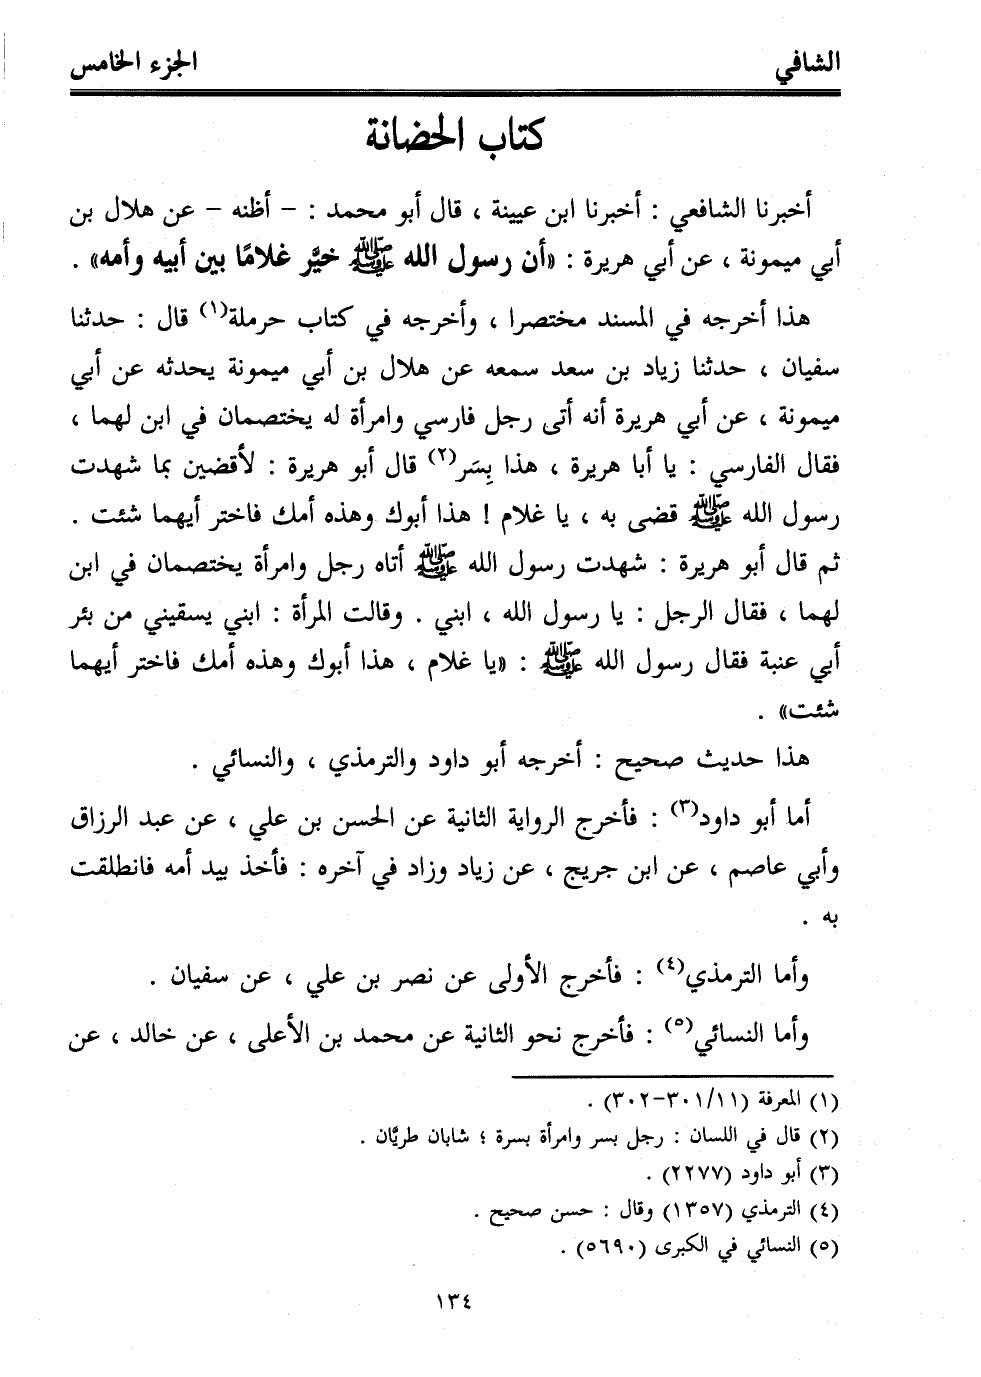 الشافي
الجزء الخامس
كتاب الحضانة
أخبرنا الشافعي : أخبرنا ابن عيينة ، قال أبو محمد : - أظنه - عن هلال بن
أبي ميمونة ، عن أبي هريرة : «أن رسول الله ﷺ خيَّر غلامًا بين أبيه وأمه» .
هذا أخرجه في المسند مختصرا ، وأخرجه في كتاب حرملة(١) قال : حدثنا
سفيان ، حدثنا زياد بن سعد سمعه عن هلال بن أبي ميمونة يحدثه عن أبي
ميمونة ، عن أبي هريرة أنه أتى رجل فارسي وامرأة له يختصمان في ابن لهما ،
فقال الفارسي : يا أبا هريرة ، هذا بِسَر(٢) قال أبو هريرة : لأقضين بما شهدت
رسول الله ﷺ قضى به ، يا غلام ! هذا أبوك وهذه أمك فاختر أيهما شئت .
ثم قال أبو هريرة : شهدت رسول الله ﷺ أتاه رجل وامرأة يختصمان في ابن
لهما ، فقال الرجل : يا رسول الله ، ابني . وقالت المرأة : ابني يسقيني من بئر
أبي عنبة فقال رسول الله ﷺ : «يا غلام ، هذا أبوك وهذه أمك فاختر أيهما
شئت» .
هذا حديث صحيح : أخرجه أبو داود والترمذي ، والنسائي .
أما أبو داود(٣) : فأخرج الرواية الثانية عن الحسن بن علي ، عن عبد الرزاق
وأبي عاصم ، عن ابن جريج ، عن زياد وزاد في آخره : فأخذ بيد أمه فانطلقت
به .
وأما الترمذي(٤) : فأخرج الأولى عن نصر بن علي ، عن سفيان .
وأما النسائي(٥) : فأخرج نحو الثانية عن محمد بن الأعلى ، عن خالد ، عن
(١) المعرفة (١١/٣٠١-٣٠٢) .
(٢) قال في اللسان : رجل بسر وامرأة بسرة ؛ شابان طريَّان .
(٣) أبو داود (٢٢٧٧) .
(٤) الترمذي (١٣٥٧) وقال : حسن صحيح .
(٥) النسائي في الكبرى (٥٦٩٠) .
١٣٤